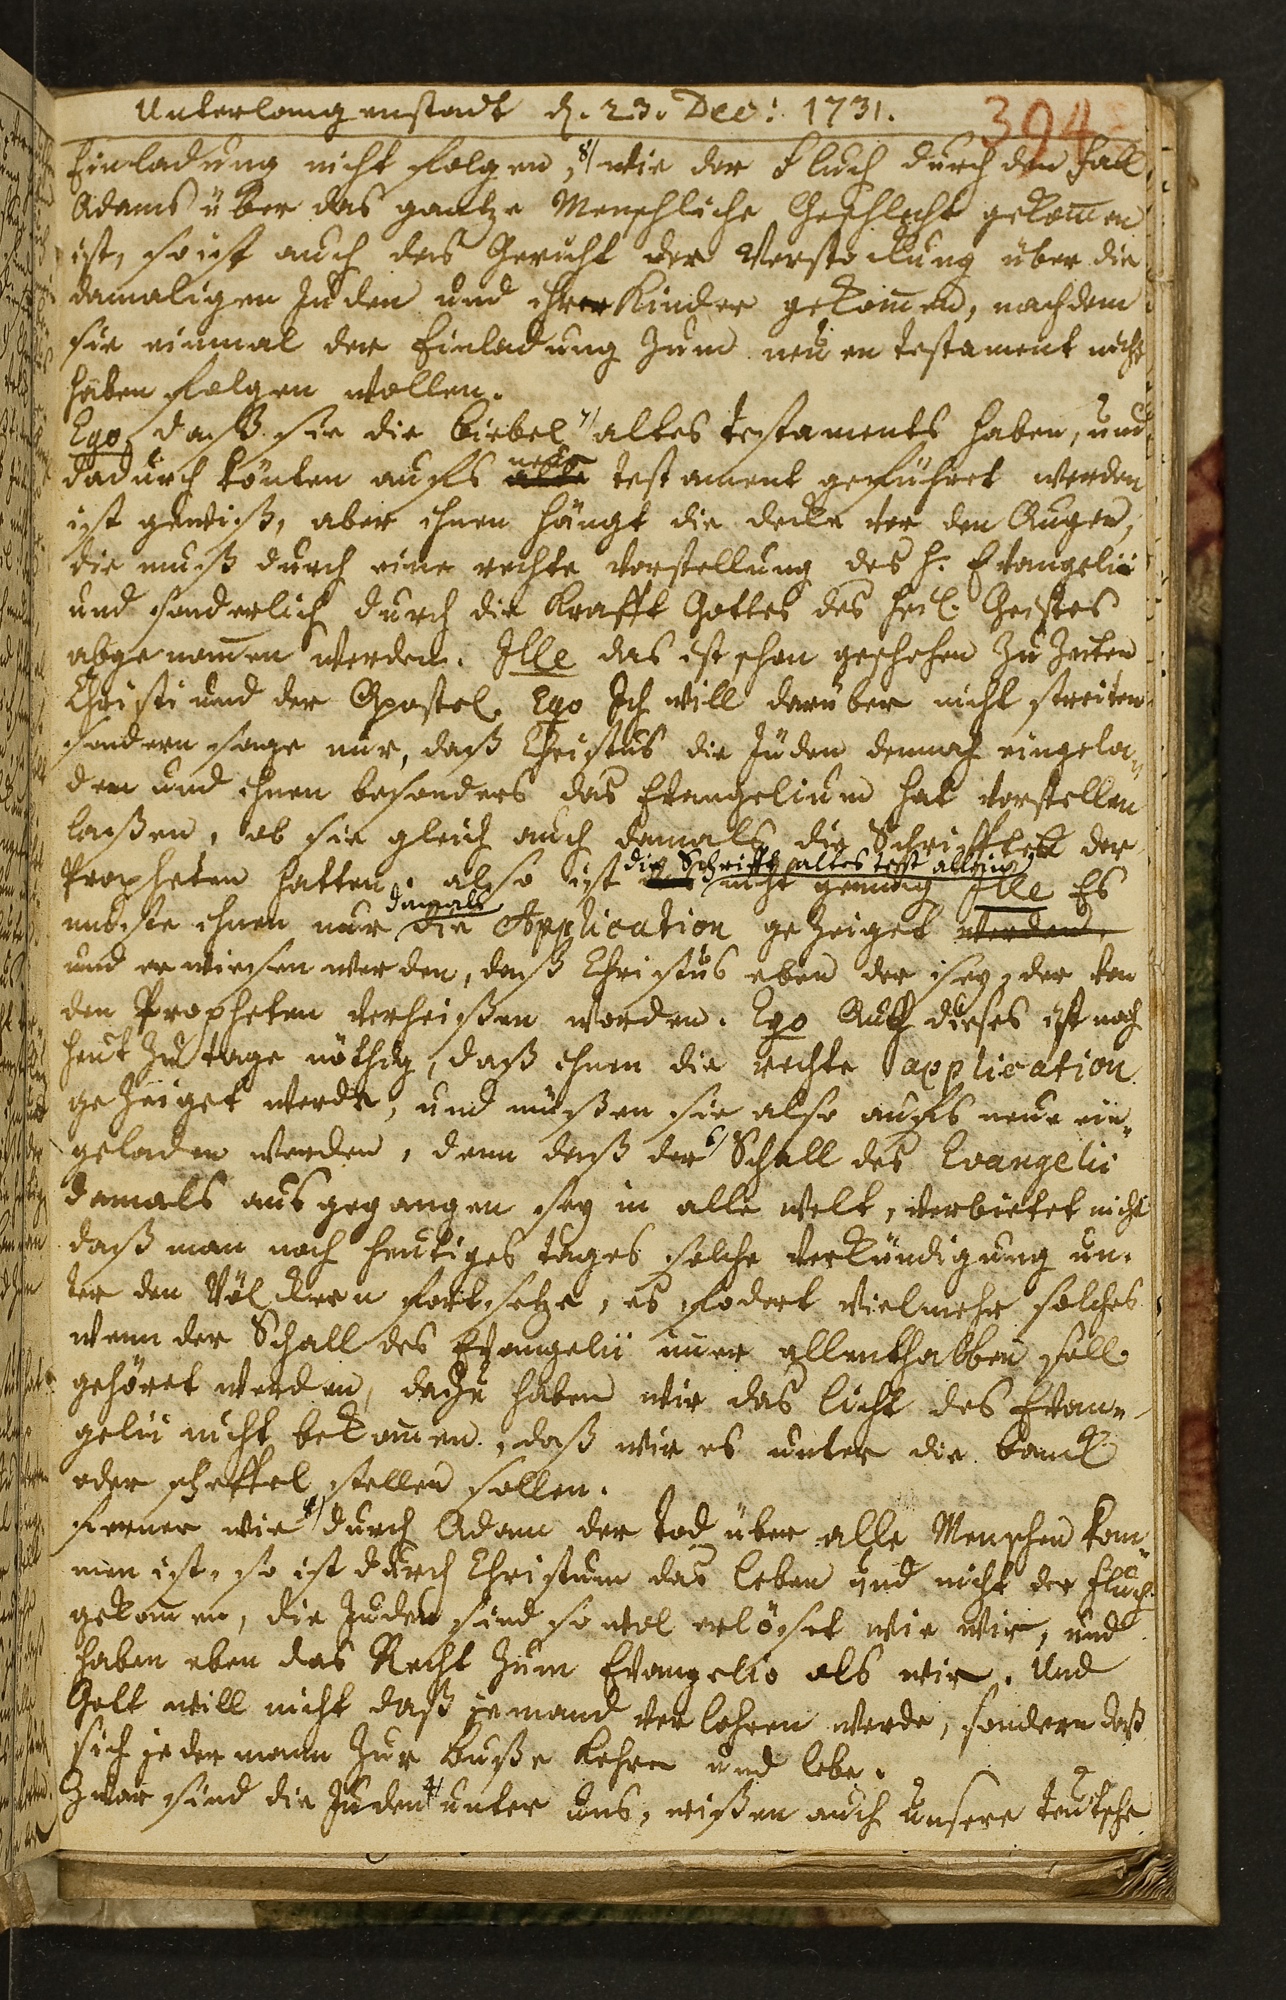 Unterlangenstadt d. 23. Dec: 1731.
394
Einladung nicht folgen, 8/ wie der Fluch durch den Fall
Adams über das gantze Menschliche Geschlecht gekom̄en
ist, so ist auch das Gericht der Verstockung über die
damaligen Juden und ihre Kinder gekom̄en, nachdem
sie einmal der Einladung zum neuen testament nicht
haben folgen wollen.
Ego, daß sie die Biebel 7/ altes testaments haben, und
dadurch könten aufs alte neue testament geführet werden
ist gewiß, aber ihnen hängt die decke vor den Augen,
die muß durch eine rechte vorstellung des h. Evangelii
und sonderlich durch die Krafft Gottes des heil. Geistes
abgenom̄en werden. Ille das ist schon geschehen zu Zeiten
Christi und der Apostel. Ego Ich will darüber nicht streiten
sondern sage nur, daß Christus die Juden dennoch eingela-
den und ihnen besonders das Evangelium hat vorstellen
laßen, ob sie gleich auch damals die Schrifften der
Propheten hatten. also ist die Schrifft altes test allein nicht genung Ille Es
muste ihnen nur damals die Application gezeiget werden,
und erwiesen werden, daß Christus eben der sey, der von
den Propheten verheißen worden. Ego Auch dieses ist noch
heut zu tage nöthig, daß ihnen die rechte application
gezeiget werde, und müßen sie also aufs neue ein-
geladen werden, denn daß der 6/ Schall des Evangelii
damals ausgegangen sey in alle welt, verbietet nicht
daß man noch heutiges tages solche verkündigung un-
ter den Völckern fortsetze, es fodert vielmehr solches
wenn der Schall des Evangelii im̄er allenthalben soll
gehöret werden, dazu haben wir das licht des Evan-
gelii nicht bekom̄en, daß wir es unter die banck
oder scheffel stellen sollen.
Ferner wie durch Adam der tod über alle Menschen kom-
men ist, so ist durch Christum das leben und nicht der Fluch
gekom̄en, die Juden sind so wol erlöset wie wir, und
haben eben das Recht zum Evangelio als wir. Und
Gott will nicht daß jemand verlohren werde, sondern daß
sich jedermann zur buße kehre und lebe.
Zwar sind die Juden 4/ unter uns, wißen auch unsere teutsche